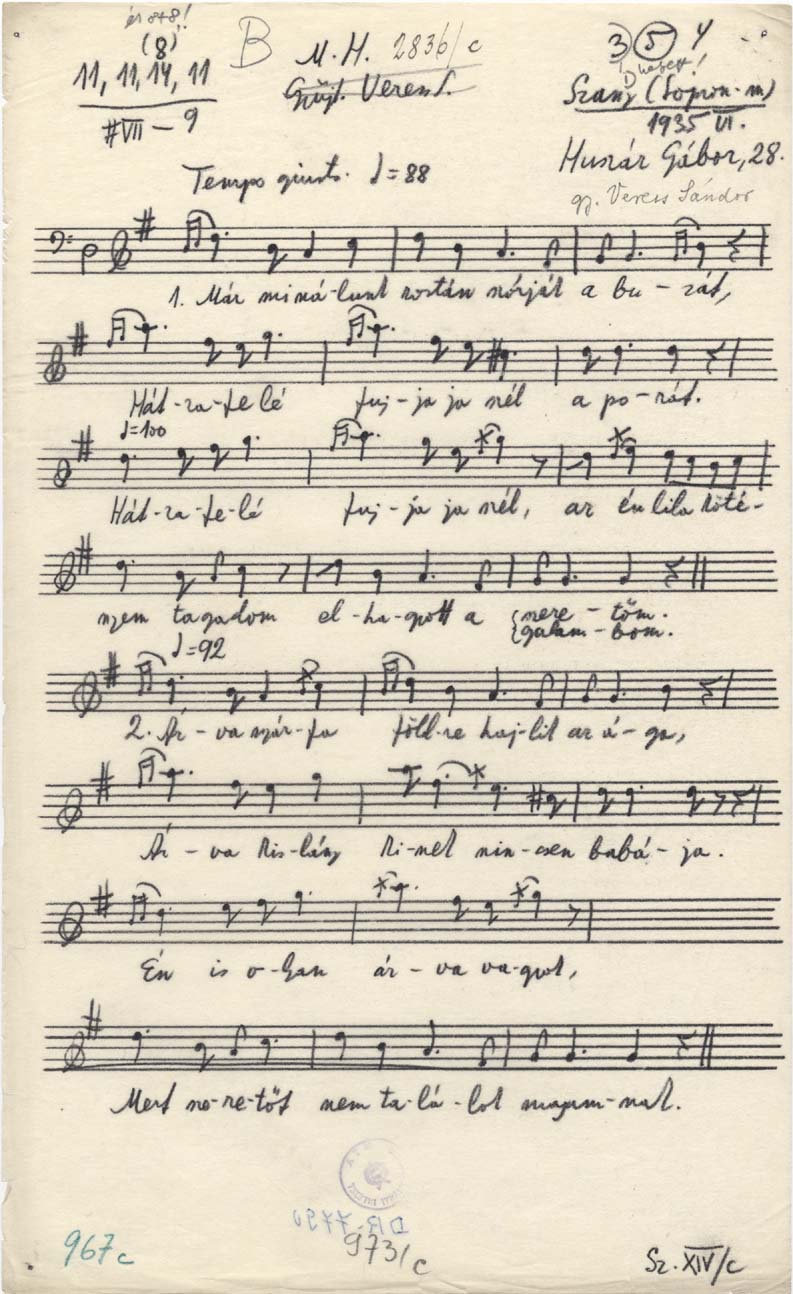 és 8+8!
(8)
11, 11, 14, 11
#VII – 9
B
M. H. 2836/c
Gyűjt. Veress.
3 5 4
Szany (Sopron-m)
1935 VI.
Huszár Gábor, 28.
gy. Veress Sándor
Tempo giusto. ♩=88
1. Már minálunk rostán szórják a bu-zát,
Hát-ra-fe lé fuj-ja ja szél a po-rát.
♩=100
Hát-ra-fe-lé fuj-ja ja szél, az én lila köté-
nyem tagadom el-ha-gyott a {szere-tőm.
{galam-bom.
♩=92
2. Ár-va nyár-fa föld-re haj-lik az á-ga,
Ár-va kis-lány ki-nek nin-csen babá-ja.
Én is o-lyan ár-va va-gyok,
Mert sze-re-tőt nem ta-lá-lok magam-nak.
967c
973/c
Sz. XIV/c